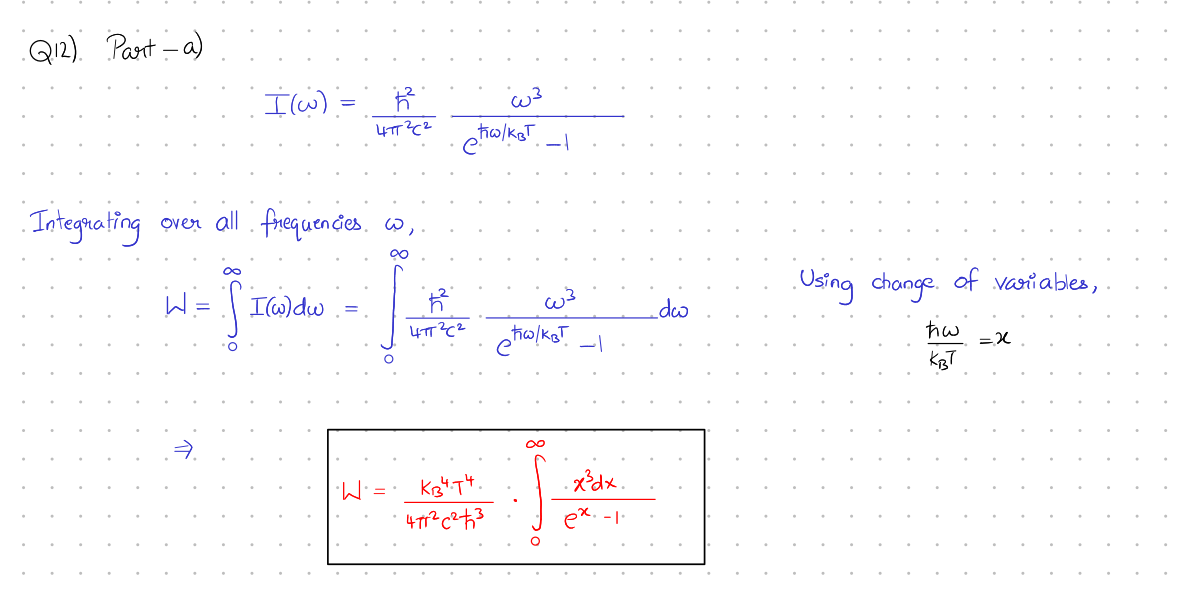 Q12) Part - a)
I(ω) = ħ²/4π²c² ω³/e^(ħω/k_BT) - 1
Integrating over all frequencies ω,
W = ∫₀^∞ I(ω)dω = ∫₀^∞ ħ²/4π²c² · ω³/e^(ħω/k_BT) - 1 dω
Using change of variables,
ħω/k_BT = x
⇒ W = k_B⁴T⁴/4π²c²ħ³ · ∫₀^∞ x³dx/e^x - 1